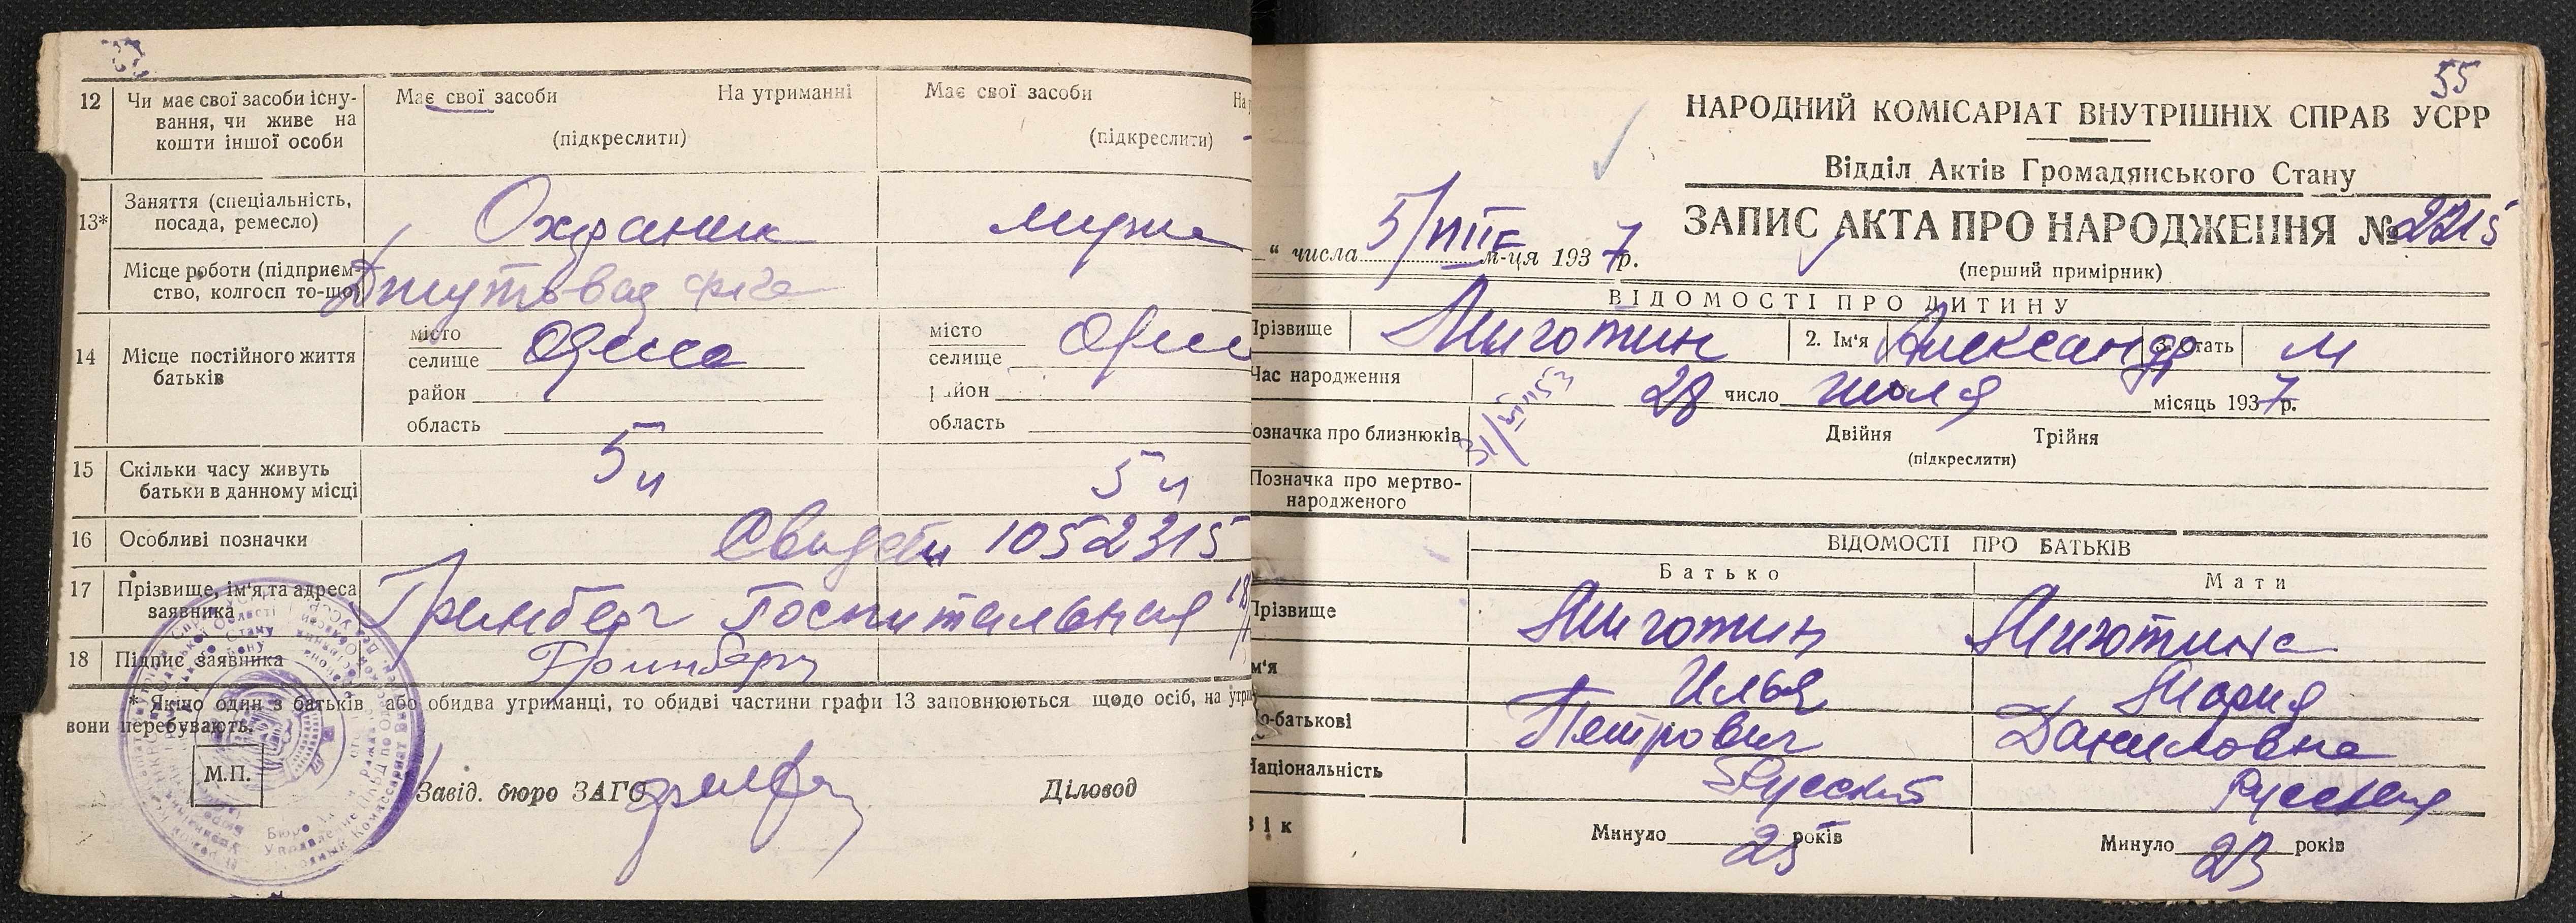 12 Чи має свої засоби існу-
вання, чи живе на
кошти іншої особи
Має свої засоби На утриманні
(підкреслити)
Має свої засоби На у
(підкреслити)
13* Заняття (спеціальність,
посада, ремесло)
Охраник
Місце роботи (підприєм-
ство, колгосп то-що)
Джутовая ф-ка
14 Місце постійного життя
батьків
місто
селище Одесса
район
область
місто
селище Одесс
район
область
15 Скільки часу живуть
батьки в данному місці
5 л
5 л
16 Особливі позначки
1052315
17 Прізвище, ім'я та адреса
заявника
Гринберг Госпитальная
18 Підпис заявника
Гринберг
* Якщо один з батьків або обидва утриманці, то обидві частини графи 13 заповнюються щодо осіб, на утри
вони перебувають.
М.П.
Завід. бюро ЗАГС
Діловод
55
НАРОДНИЙ КОМІСАРІАТ ВНУТРІШНІХ СПРАВ УСРР
Відділ Актів Громадянського Стану
ЗАПИС АКТА ПРО НАРОДЖЕННЯ № 2215
(перший примірник)
" числа 5/VIII м-ця 1937 р.
ВІДОМОСТІ ПРО ДИТИНУ
Прізвище Миготин 2. Ім'я Александр 3. Стать М
Час народження 28 число июля місяць 1937 р.
означка про близнюків Двійня Трійня
(підкреслити)
Позначка про мертво-
народженого
ВІДОМОСТІ ПРО БАТЬКІВ
Батько Мати
Прізвище Миготин Миготина
м'я Илья Мария
о-батькові Петрович Даниловна
Національність Русский Русская
Вік Минуло 25 років Минуло 23 років